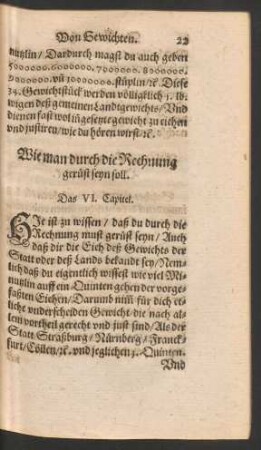 Von Gewichten. 22
nutzlin / Dardurch magst du auch geben
5000000. 6000000. 7000000. 8000000.
9000000. vñ 10000000. stüplin / ꝛc. Diese
34. Gewichtstück werden völligklich 1. lb.
wigen deß gemeinen Landtgewichts / Vnd
dienen fast wol in gesetzte gewicht zu eichen
vnd justiren / wie du hören wirst / ꝛc.
Wie man durch die Rechnung
gerüst seyn soll.
Das VI. Capitel.
HJe ist zu wissen / daß du durch die
Rechnung must gerüst seyn / Auch
daß dir die Eich deß Gewichts der
Statt oder deß Lands bekandt sey / Nem-
lich daß du eigentlich wissest wie viel Mi-
nutzlin auff ein Quinten gehen der vorge-
faßten Eichen / Darumb nim̃ für dich et-
liche vnderscheiden Gewicht die nach al-
lem vortheil gerecht vnd just sind / Als der
Statt Straßburg / Nürnberg / Franck-
furt / Cöllen / ꝛc. vnd jeglichen 1. Quinten.
Vnd